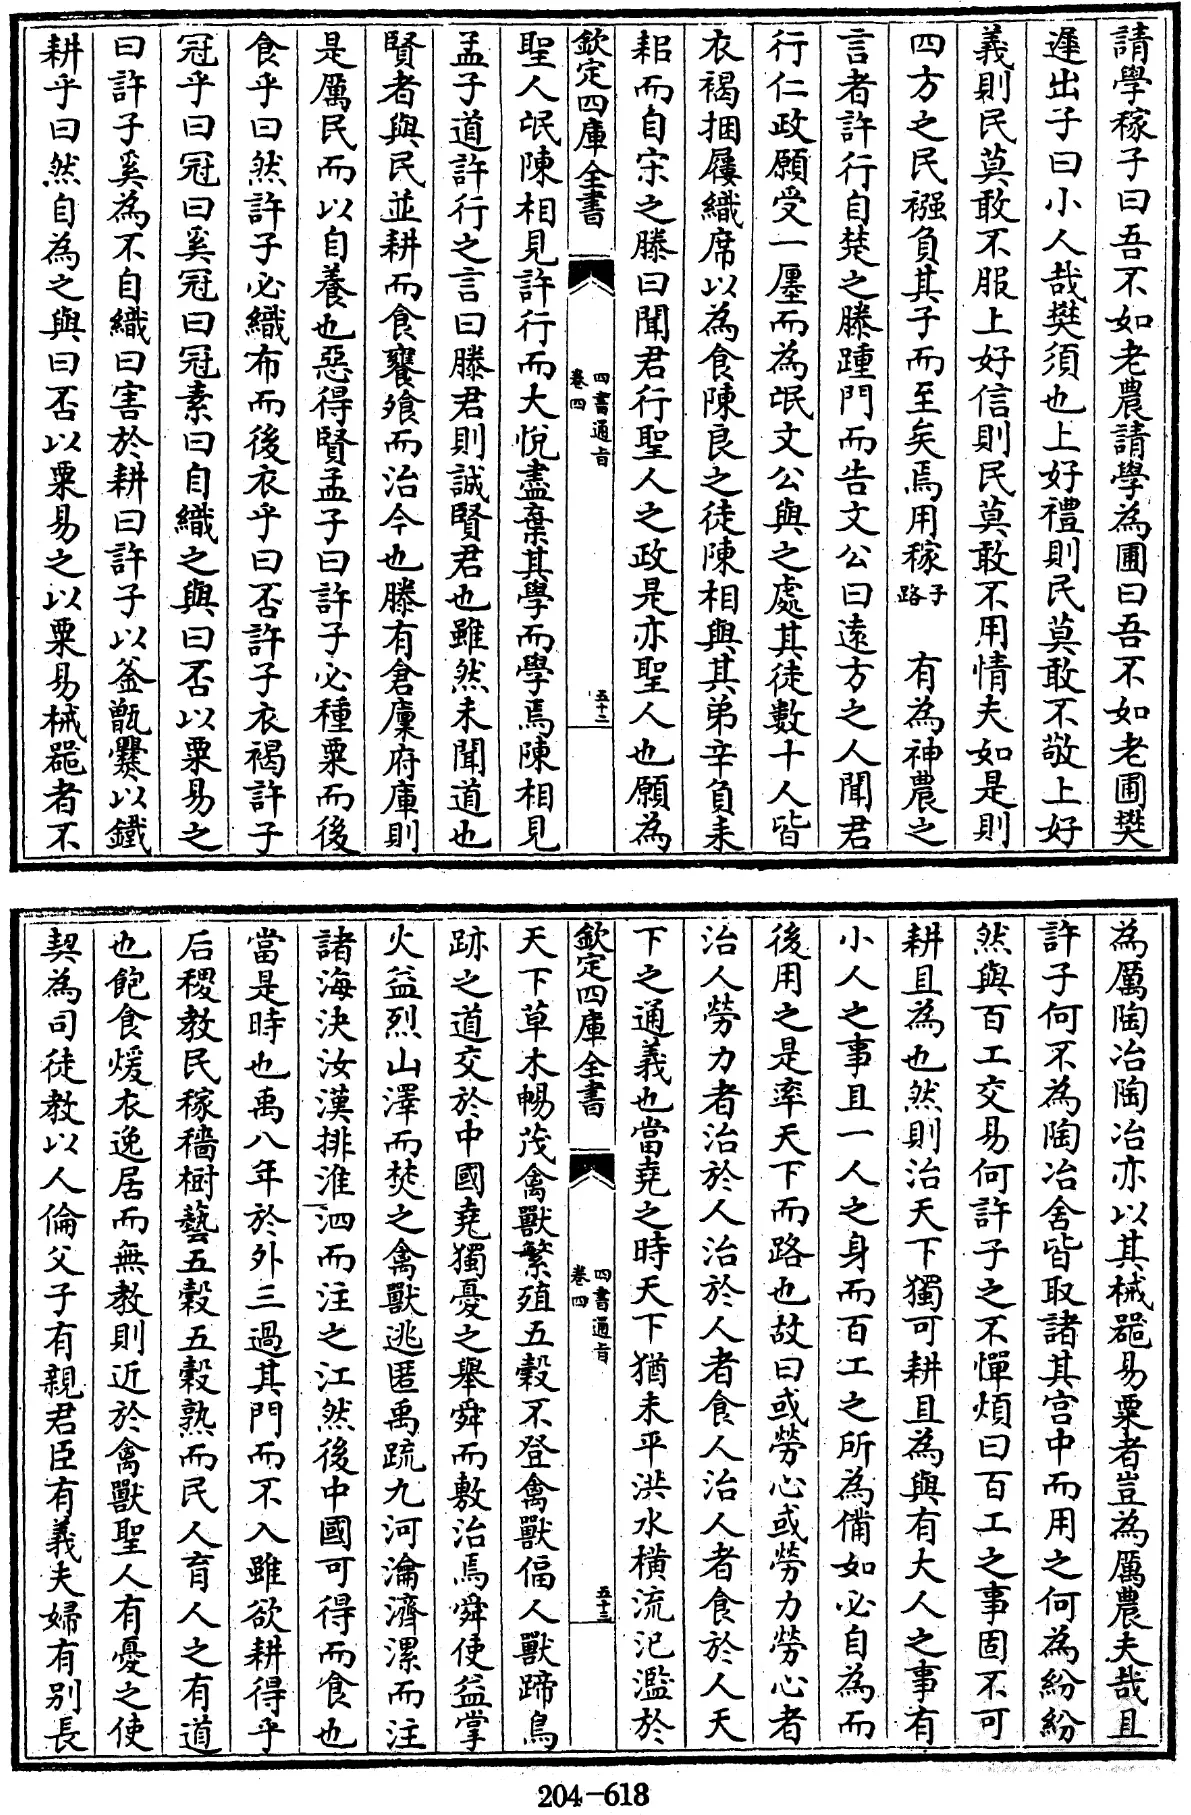 請學稼子曰吾不如老農請學為圃曰吾不如老圃樊
遲出子曰小人哉樊須也上好禮則民莫敢不敬上好
義則民莫敢不服上好信則民莫敢不用情夫如是則
四方之民襁負其子而至矣焉用稼子路 有為神農之
言者許行自楚之滕踵門而告文公曰遠方之人聞君
行仁政願受一廛而為氓文公與之處其徒數十人皆
衣褐捆屨織席以為食陳良之徒陳相與其弟辛負耒
耜而自宋之滕曰聞君行聖人之政是亦聖人也願為
欽定四庫全書
四書通旨
卷四
五十二
聖人氓陳相見許行而大悅盡棄其學而學焉陳相見
孟子道許行之言曰滕君則誠賢君也雖然未聞道也
賢者與民並耕而食饔飧而治今也滕有倉廩府庫則
是厲民而以自養也惡得賢孟子曰許子必種粟而後
食乎曰然許子必織布而後衣乎曰否許子衣褐許子
冠乎曰冠曰奚冠曰冠素曰自織之與曰否以粟易之
曰許子奚為不自織曰害於耕曰許子以釜甑爨以鐵
耕乎曰然自為之與曰否以粟易之以粟易械器者不
為厲陶冶陶冶亦以其械器易粟者豈為厲農夫哉且
許子何不為陶冶舍皆取諸其宮中而用之何為紛紛
然與百工交易何許子之不憚煩曰百工之事固不可
耕且為也然則治天下獨可耕且為與有大人之事有
小人之事且一人之身而百工之所為備如必自為而
後用之是率天下而路也故曰或勞心或勞力勞心者
治人勞力者治於人治於人者食人治人者食於人天
下之通義也當堯之時天下猶未平洪水橫流氾濫於
欽定四庫全書
四書通旨
卷四
五十三
天下草木暢茂禽獸繁殖五穀不登禽獸偪人獸蹄鳥
跡之道交於中國堯獨憂之舉舜而敷治焉舜使益掌
火益烈山澤而焚之禽獸逃匿禹疏九河瀹濟漯而注
諸海決汝漢排淮泗而注之江然後中國可得而食也
當是時也禹八年於外三過其門而不入雖欲耕得乎
后稷教民稼穡樹藝五穀五穀熟而民人育人之有道
也飽食煖衣逸居而無教則近於禽獸聖人有憂之使
契為司徒教以人倫父子有親君臣有義夫婦有別長
204-618